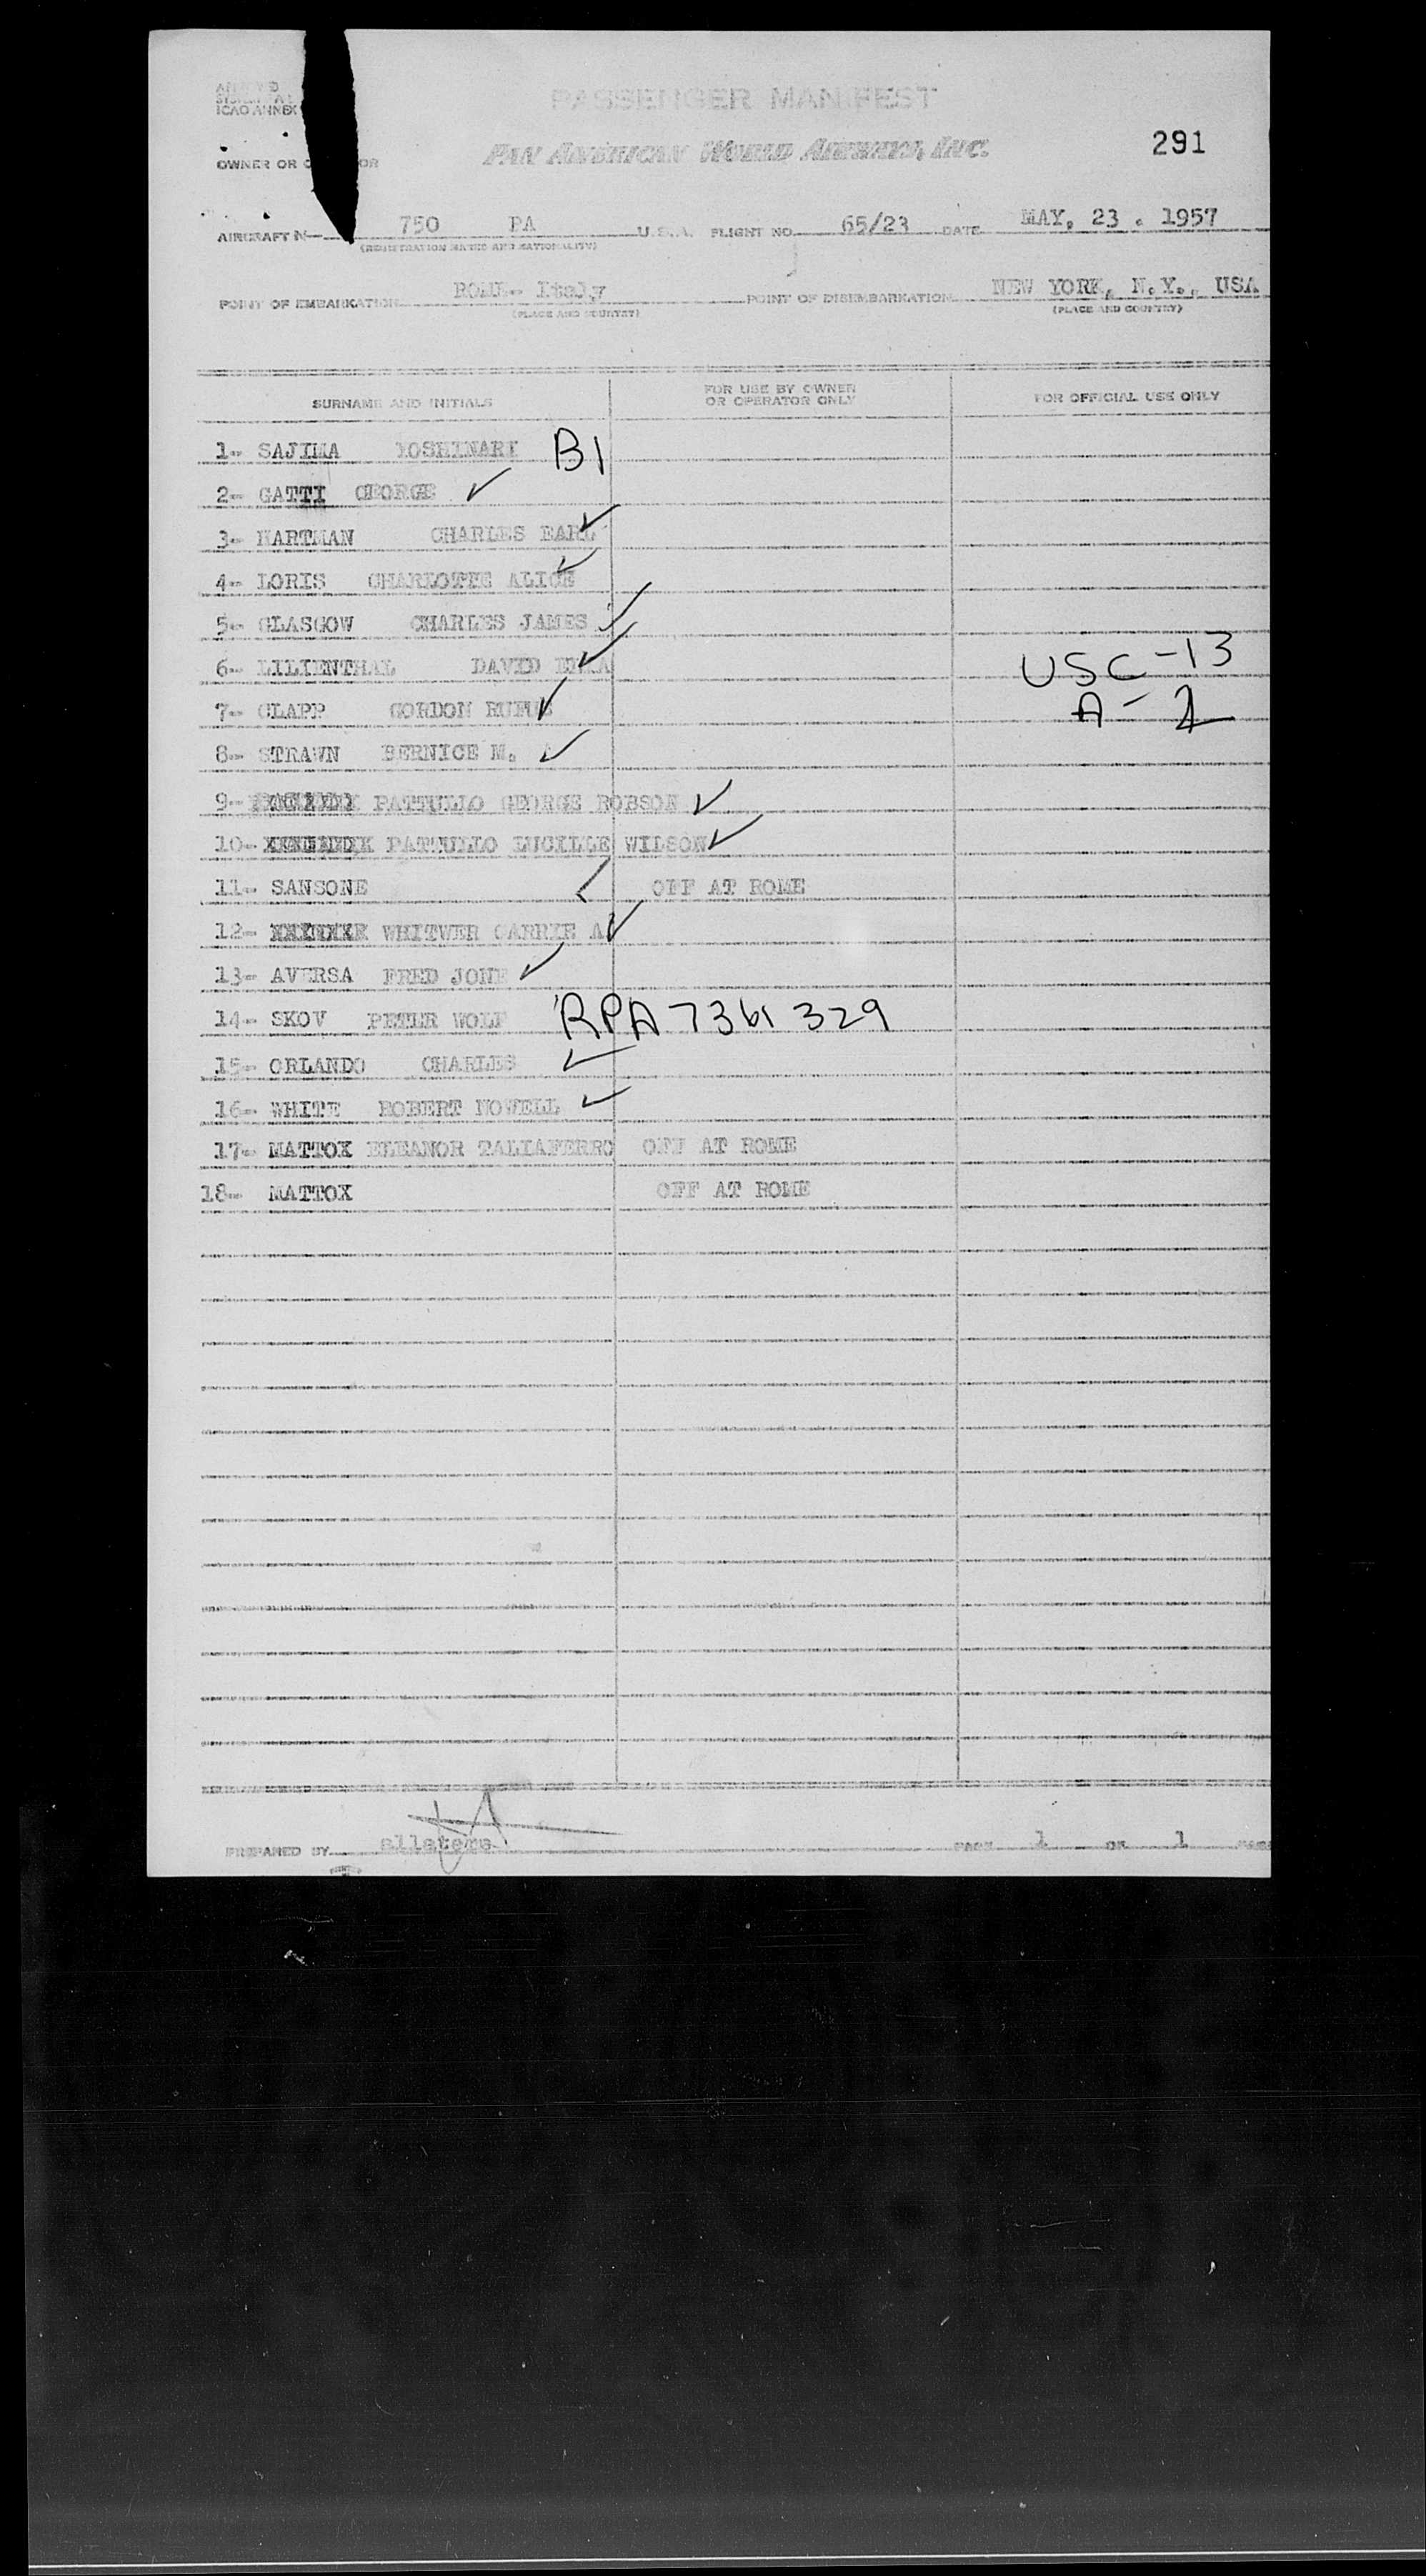 ICAO ANNEX
PASSENGER MANIFEST
291
OWNER OR OR
PAN AMERICAN WORLD AIRWAYS, INC.
AIRCRAFT N 750 PA U.S.A. FLIGHT NO. 65/23 DATE MAY, 23. 1957
(REGISTRATION MARKS AND NATIONALITY)
POINT OF EMBARKATION ROME- Italy POINT OF DISEMBARKATION NEW YORK, N.Y., USA
(PLACE AND COUNTRY) (PLACE AND COUNTRY)
SURNAME AND INITIALS FOR USE BY OWNER OR OPERATOR ONLY FOR OFFICIAL USE ONLY
1- SAJIMA YOSHINARI B1
2- GATTI GEORGE ✓
3- HARTMAN CHARLES EARL ✓
4- LORIS CHARLOTTE ALICE ✓
5- GLASGOW CHARLES JAMES ✓
6- LILIENTHAL DAVID ✓ USC-13
7- CLAPP GORDON RUFUS ✓ A-
8- STRAWN BERNICE M. ✓
9- PATTULLO GEORGE ROBSON ✓
10- PATTULLO LUCILLE WILSON ✓
11- SANSONE ✓ OFF AT ROME
12- WHITWER CARRIE A ✓
13- AVERSA FRED JOHN ✓
14- SKOV PETER WOLF RPA 7361 329
15- ORLANDO CHARLES ✓
16- WHITE ROBERT NOWELL ✓
17- MATTOX ELEANOR TALIAFERRO OFF AT ROME
18- MATTOX OFF AT ROME
PREPARED BY PAGE 1 OF 1 PAGES